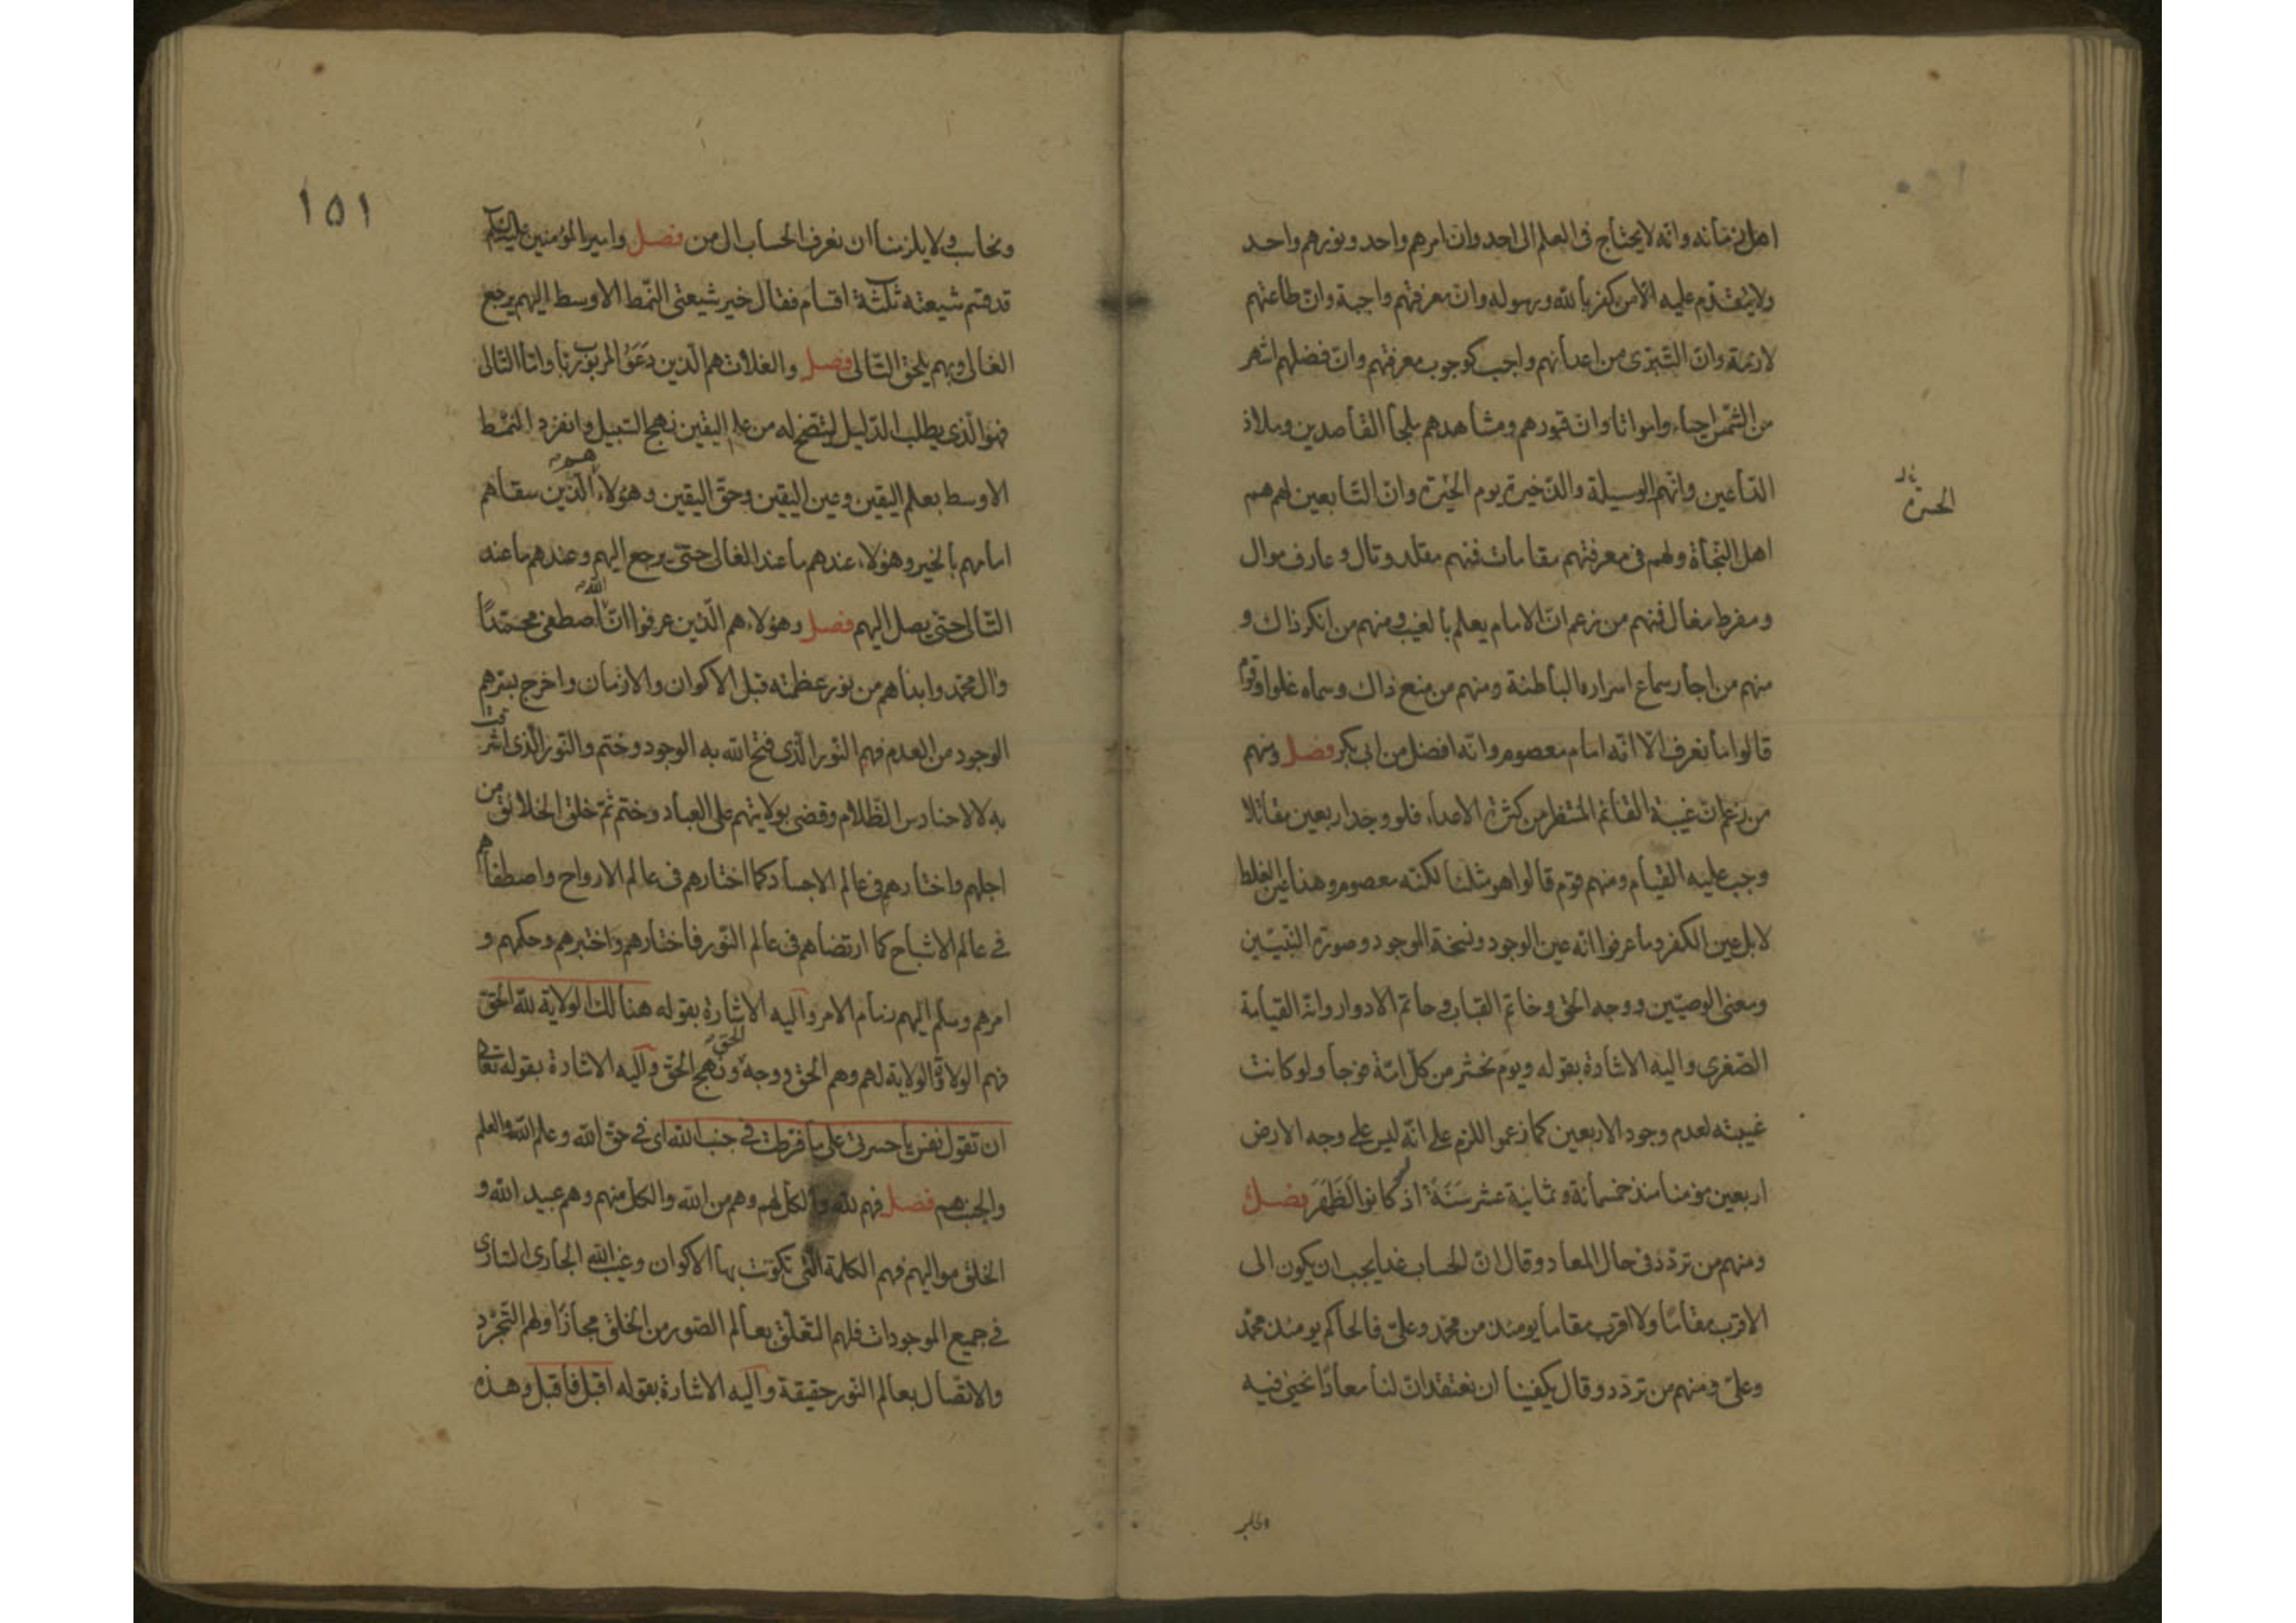 اهل زمانه وانه لا يحتاج فى العلم الى احد وان امرهم واحد ونورهم واحد
ولا يتقدم عليه الا من كفر بالله ورسوله وان معرفتهم واجبة وان طاعتهم
لازمة وان التبرى من اعدائهم واجب كوجوب معرفتهم وان فضلهم اشهر
من الشمس احياء وامواتا وان قبورهم ومشاهدهم ملجأ القاصدين وملاذ
الداعين وانهم الوسيلة والذخيرة يوم الحيرة وان التابعين لهم هم
الحسرة
اهل النجاة ولهم فى معرفتهم مقامات فمنهم مقلد وتال وعارف موال
ومفرط مغال فمنهم من زعم ان الامام يعلم بالغيب ومنهم من انكر ذاك و
منهم من اجاز سماع اسراره الباطنة ومنهم من منع ذاك وسماه غلوا وقوم
قالوا ما نعرف الا انه امام معصوم وانه افضل من ابى بكر فصل ومنهم
من زعم ان غيبة القائم المنتظر من كثرة الاعداء فلو وجد اربعين مقاتلا
وجب عليه القيام ومنهم قوم قالوا هو مثلنا لكنه معصوم وهذا عين الغلط
لا بل عين الكفر وما عرفوا انه عين الوجود ونسخة الموجود وصورة النبيين
ومعنى الوصيين ووجه الحق وخاتم القباب وخاتم الادوار وانه القيامة
الصغرى واليه الاشارة بقوله ويوم نحشر من كل امة فوجا ولو كانت
غيبته لعدم وجود الاربعين كما زعموا اللزم على انه ليس على وجه الارض
اربعين مؤمنا منذ خمسمائة وثمانية عشر سنة اذ لو كانوا لظهر فصل
ومنهم من تردد فى حال المعاد وقال ان الحساب غدا يجب ان يكون الى
الاقرب مقاما ولا اقرب مقاما يومئذ من محمد وعلى فالحاكم يومئذ محمد
وعلى ومنهم من تردد وقال يكفينا ان نعتقد ان لنا معادا نحيى فيه
١٥١
ونحاسب ولا يلزمنا ان نعرف الحساب ال من فصل وامير المؤمنين عليه السلام
قد قسم شيعته ثلثة اقسام فقال خير شيعتى النمط الاوسط اليهم يرجع
الغالى وبهم يلحق التالى فصل والغلات هم الذين دعوا المربوب ربا واما التالى
فهو الذى يطلب الدليل ليتضح له من علم اليقين نهج السبيل وانفرد النمط
الاوسط بعلم اليقين وعين اليقين وحق اليقين وهؤلاء هم الذين سقاهم
امامهم بالخير وهؤلاء عندهم ما عند الغالى حتى يرجع اليهم وعندهم ما عند
التالى حتى يصل اليهم فصل وهؤلاء هم الذين عرفوا ان الله اصطفى محمدا
وال محمد وابداهم من نور عظمته قبل الاكوان والازمان واخرج بسرهم
الوجود من العدم فهم النور الذى فتح الله به الوجود وختم والنور الذى اشرقت
به لالا حنادس الظلام وقضى بولايتهم على العباد وختم ثم خلق الخلائق من
اجلهم واختارهم فى عالم الاجساد كما اختارهم فى عالم الارواح واصطفاهم
فى عالم الاشباح كما ارتضاهم فى عالم النور فاختارهم واختبرهم وحكمهم و
امرهم وسلم اليهم زمام الامر واليه الاشارة بقوله هنالك الولاية لله الحق
فهم الولاة والولاية لهم وهم الحق ووجه الحق ونهج الحق واليه الاشارة بقوله تعالى
ان تقول نفس يا حسرتى على ما فرطت فى جنب الله اى فى حق الله وعلم الله والعلم
والجنب هم فصل فهم لله والكل لهم وهم من الله والكل منهم وهم عبيد الله و
الخلق مواليهم فهم الكلمة التى تكونت بها الاكوان وغيب الله الجارى السارى
فى جميع الموجودات فلهم التعلق بعالم الصور من الخلق مجازا ولهم التجرد
والاتصال بعالم النور حقيقة واليه الاشارة بقوله اقبل فاقبل وهذه